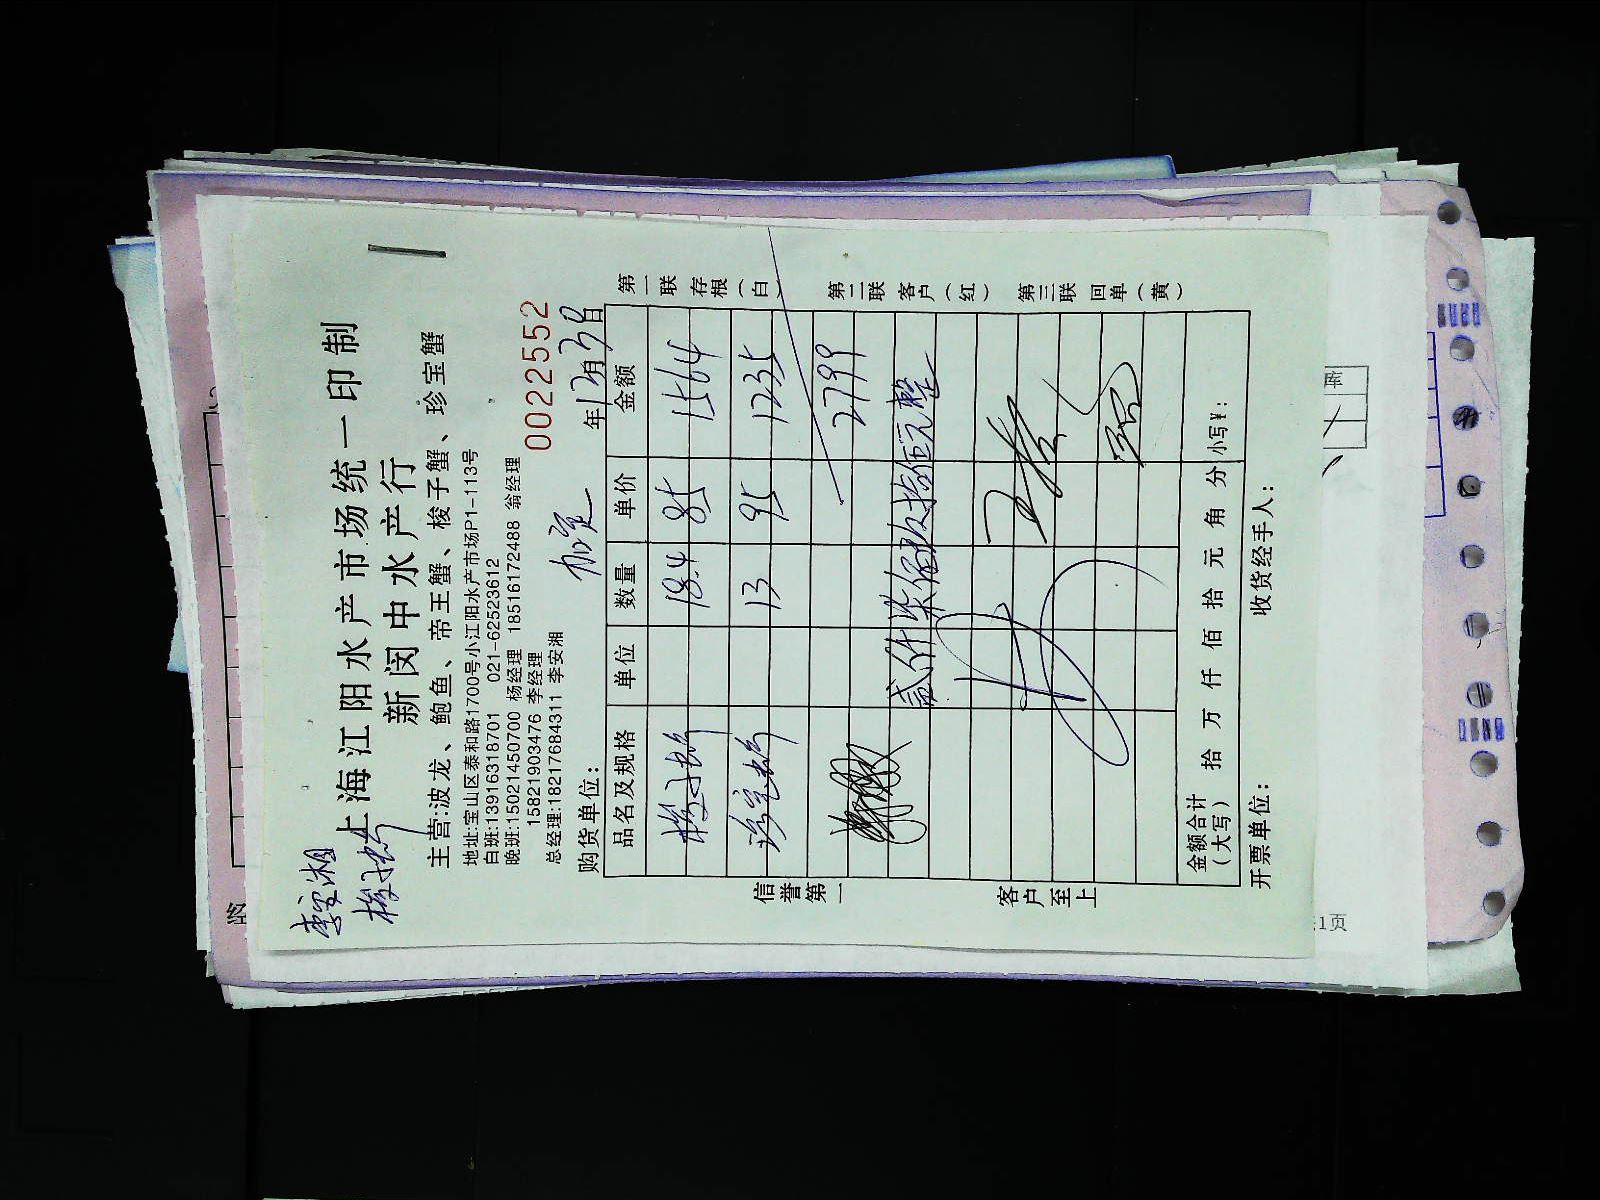 李安湘
梭子蟹
上海江阳水产市场统一印制
新闵中水产行
主营:波龙、鲍鱼、帝王蟹、梭子蟹、珍宝蟹
地址:宝山区泰和路1700号小江阳水产市场P1-113号
白班:13916318701 021-62523612
晚班:15021450700 杨经理 18516172488 翁经理
15821903476 李经理
总经理:18217684311 李安湘
0022552
购货单位:
年12月30日
品名及规格 单位 数量 单价 金额
梭子蟹 18.4 85 1564
珍宝蟹 13 95 1235
2799
贰仟柒佰玖拾伍元整
金额合计(大写) 拾 万 仟 佰 拾 元 角 分 小写¥:
开票单位: 收货经手人:
信誉第一
客户至上
第一联 存根(白)
第二联 客户(红)
第三联 回单(黄)
1页